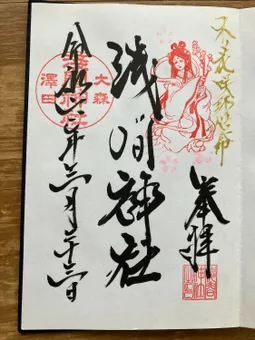 木之花咲耶姫命
奉拝
浅間神社
大森
浅間神社
澤田
令和二年三月二十三日